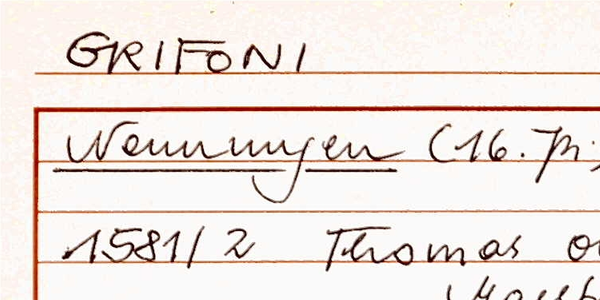 GRIFONI
Nennungen (16. Jh.)
1581/2 Thomas